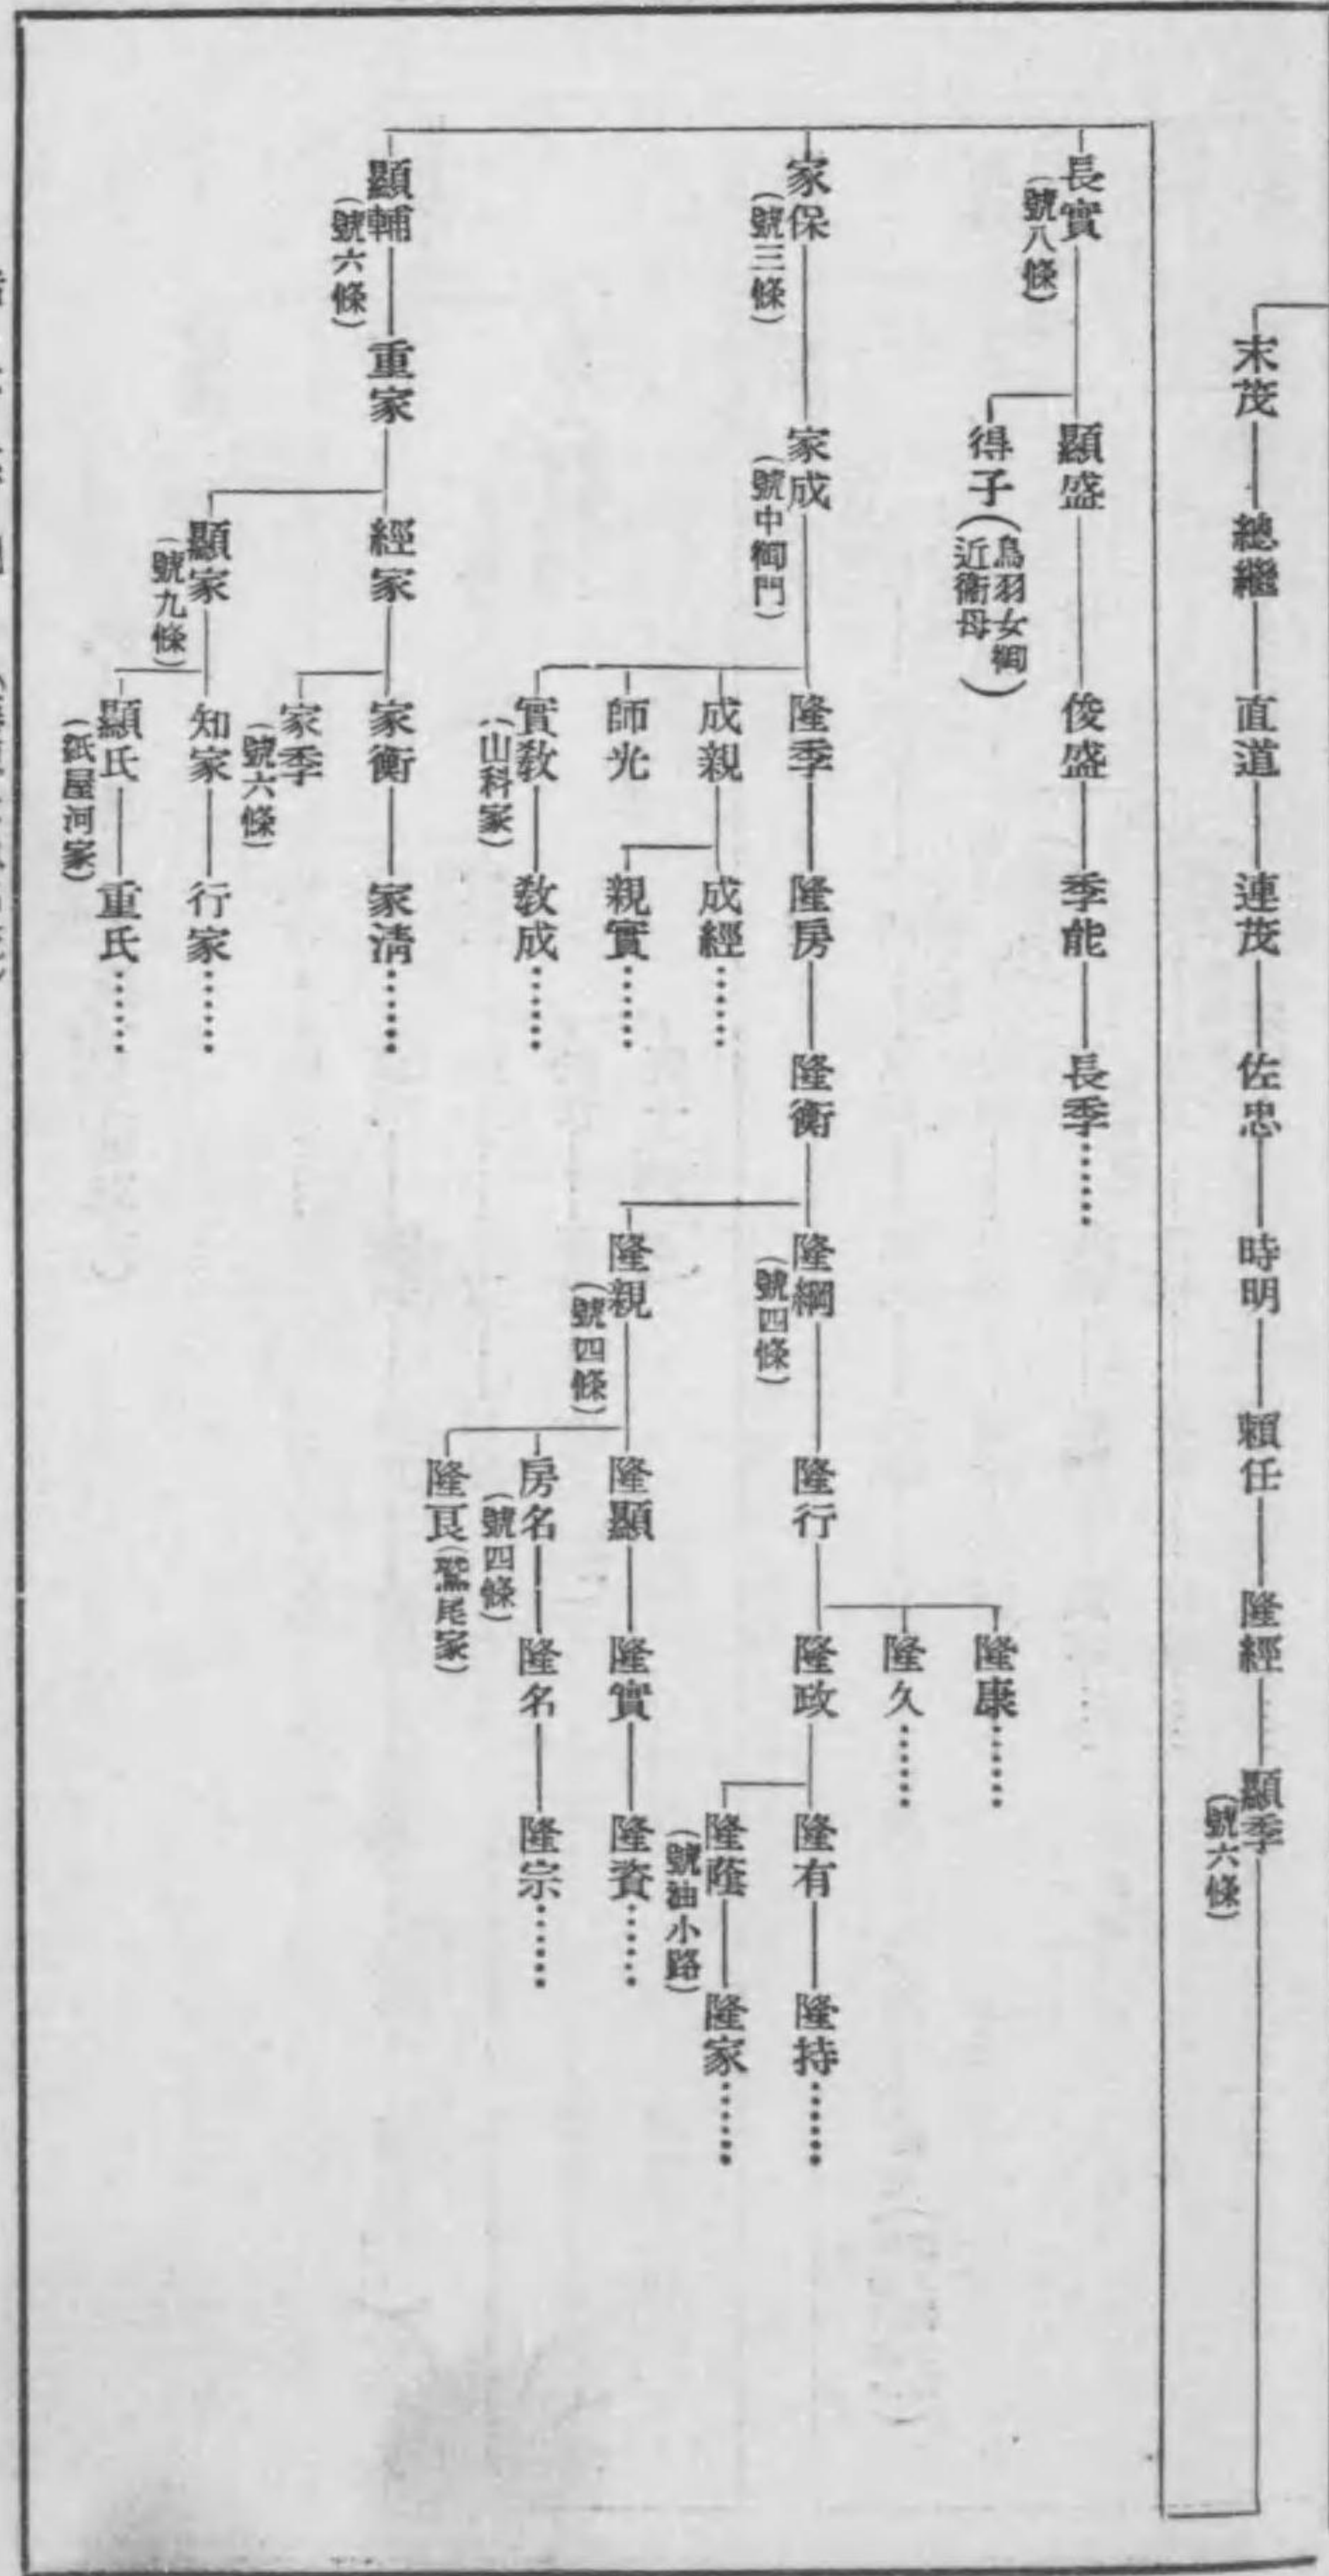 末茂 總繼 直道 連茂 佐忠 時明 賴任 隆經 顯季
(號六條)
長實
(號八條)
顯盛 俊盛 季能 長季……
得子(鳥羽女御 近衞母)
家保
(號三條)
家成
(號中御門)
隆季 隆房 隆衡
隆綱
(號四條)
隆行
隆康……
隆久……
隆政
隆有 隆持……
隆蔭 隆家……
(號油小路)
隆親
(號四條)
隆顯 隆實 隆資……
房名 隆名 隆宗……
(號四條)
隆良(鷲尾家)
成親 成經……
親實……
師光
實教 教成……
(山科家)
顯輔
(號六條)
重家
經家
家衡 家淸……
家季
(號六條)
顯家
(號九條)
知家 行家……
顯氏 重氏……
(紙屋河家)